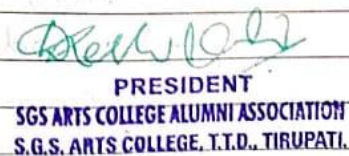 PRESIDENT
SGS ARTS COLLEGE ALUMNI ASSOCIATION
S.G.S. ARTS COLLEGE, T.T.D., TIRUPATI.